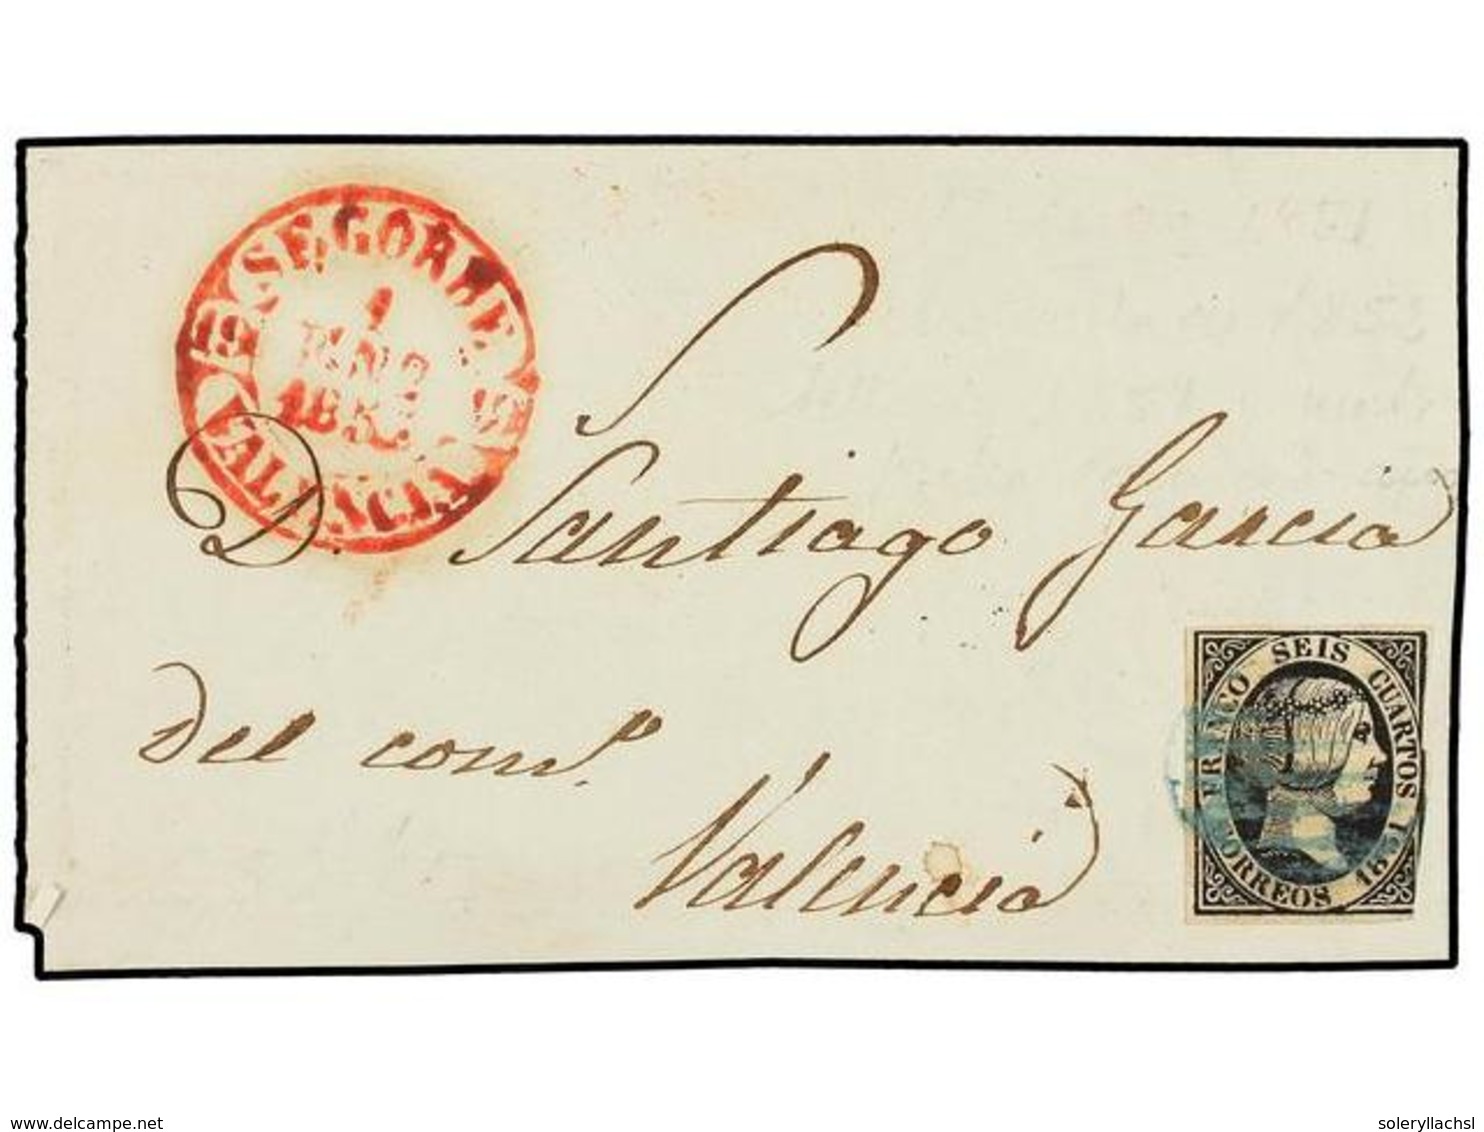 SEGORBE
1
ENE
185
VALENCIA
D. Santiago Garcia
del com.º
Valencia
FRANCO SEIS CUARTOS
CORREOS 1851
www.delcampe.net
soleryllachsl